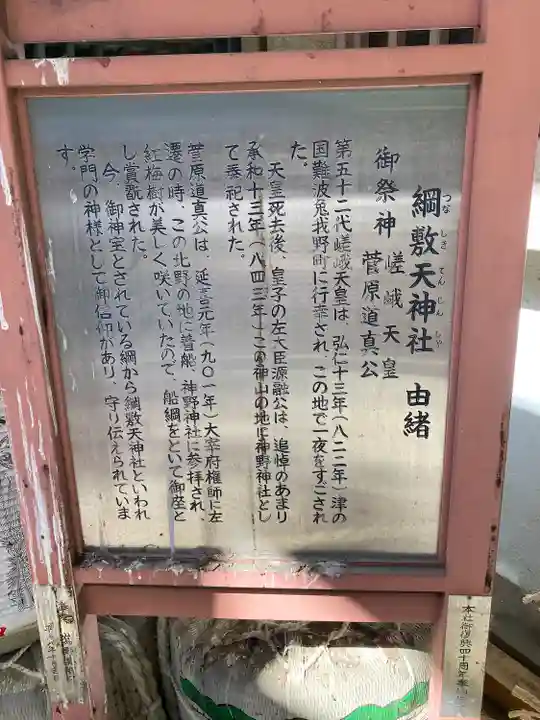 綱敷天神社 由緒
つな しき てん じん しゃ
御祭神 嵯峨天皇
菅原道真公
第五十二代嵯峨天皇は、弘仁十三年(八二二年)津の
国難波兎我野町に行幸され、この地で一夜をすごされ
た。
天皇死去後、皇子の左大臣源融公は、追悼のあまり
承和十三年(八四三年)この神山の地に神野神社とし
て奉祀された。
菅原道真公は、延喜元年(九〇一年)大宰府権師に左
遷の時、この北野の地に着船、神野神社に参拝され、
紅梅樹が美しく咲いていたので、船綱をといて御座と
し賞翫された。
今、御神宝とされている綱から綱敷天神社といわれ
学門の神様として御信仰があり、守り伝えられていま
す。
本社御復興四十周年